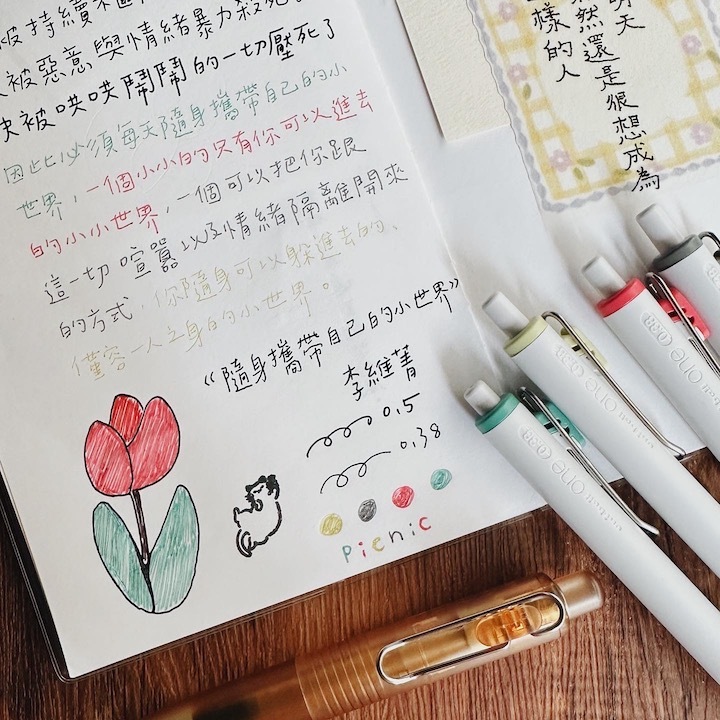 被持續不
被惡意與情緒暴力殺死
快被哄哄鬧鬧的一切壓死了
因此必須每天隨身攜帶自己的小
世界，一個小小的只有你可以進去
的小小世界，一個可以把你跟
這一切喧囂以及情緒隔離開來
的方式，你隨身可以躲進去的、
僅容一人之身的小世界。
《隨身攜帶自己的小世界》
李維菁
0.5
0.38
Picnic
天
然還是很想成為
樣的人
uni-ball ONE 0.38
uni-ball ONE 0.38
ONE 0.38